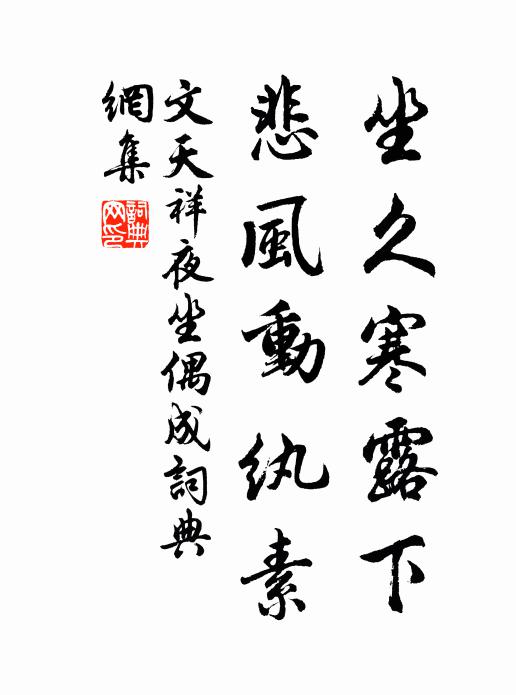 坐久寒露下
悲風動紈素
文天祥夜坐偶成詞典
網集
詞典網印